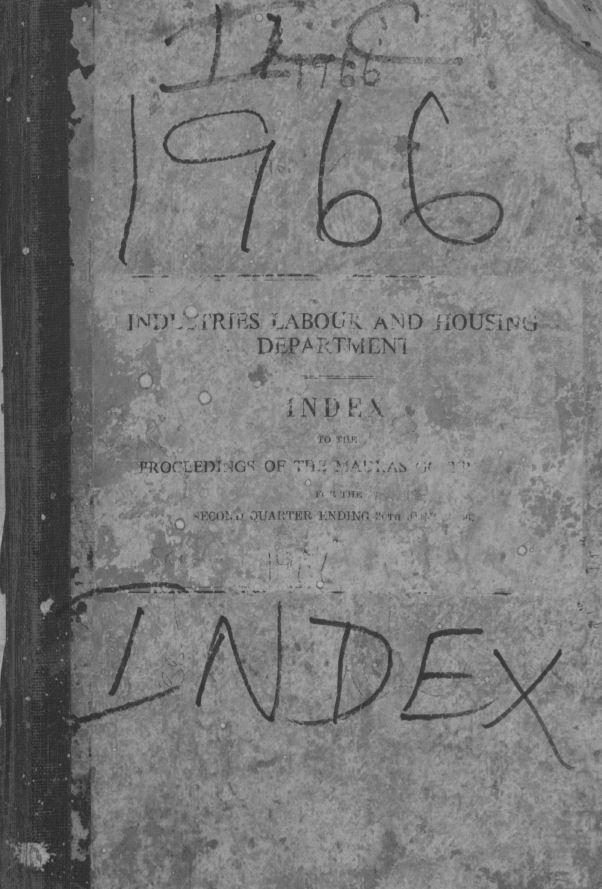 ILC
1966
1966
INDUSTRIES LABOUR AND HOUSING
DEPARTMENT
INDEX
TO THE
PROCEEDINGS OF THE MADRAS
FOR THE
SECOND QUARTER ENDING 30TH
INDEX